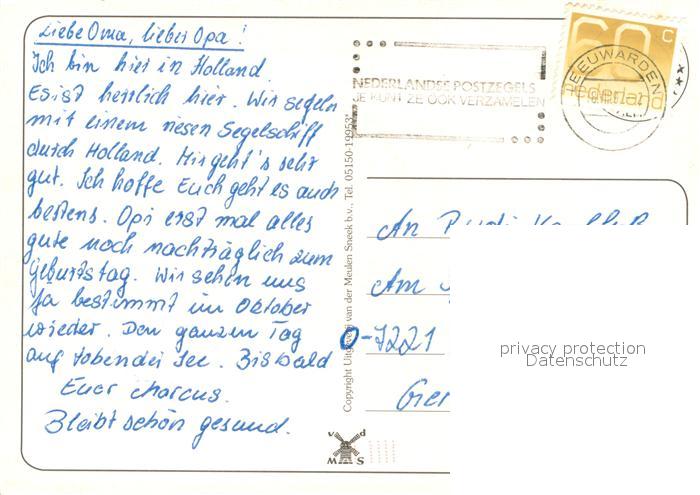 Liebe Oma, lieber Opa!
Ich bin hier in Holland.
Es ist herrlich hier. Wir segeln
mit einem riesen Segelschiff
durch Holland. Mir geht's sehr
gut. Ich hoffe Euch geht es auch
bestens. Opi erst mal alles
gute noch nachträglich zum
Geburtstag. Wir sehen uns
ja bestimmt im Oktober
wieder. Den ganzen Tag
auf tobender See. Bis bald
Euer Marcus.
Bleibt schön gesund.
NEDERLANDSE POSTZEGELS
JE KUNT ZE OOK VERZAMELEN
60 c
nederland
LEEUWARDEN
Copyright Uitgeverij van der Meulen Sneek b.v., Tel. 05150-19953*
v d
M S
An
Am
O-7221
privacy protection
Datenschutz